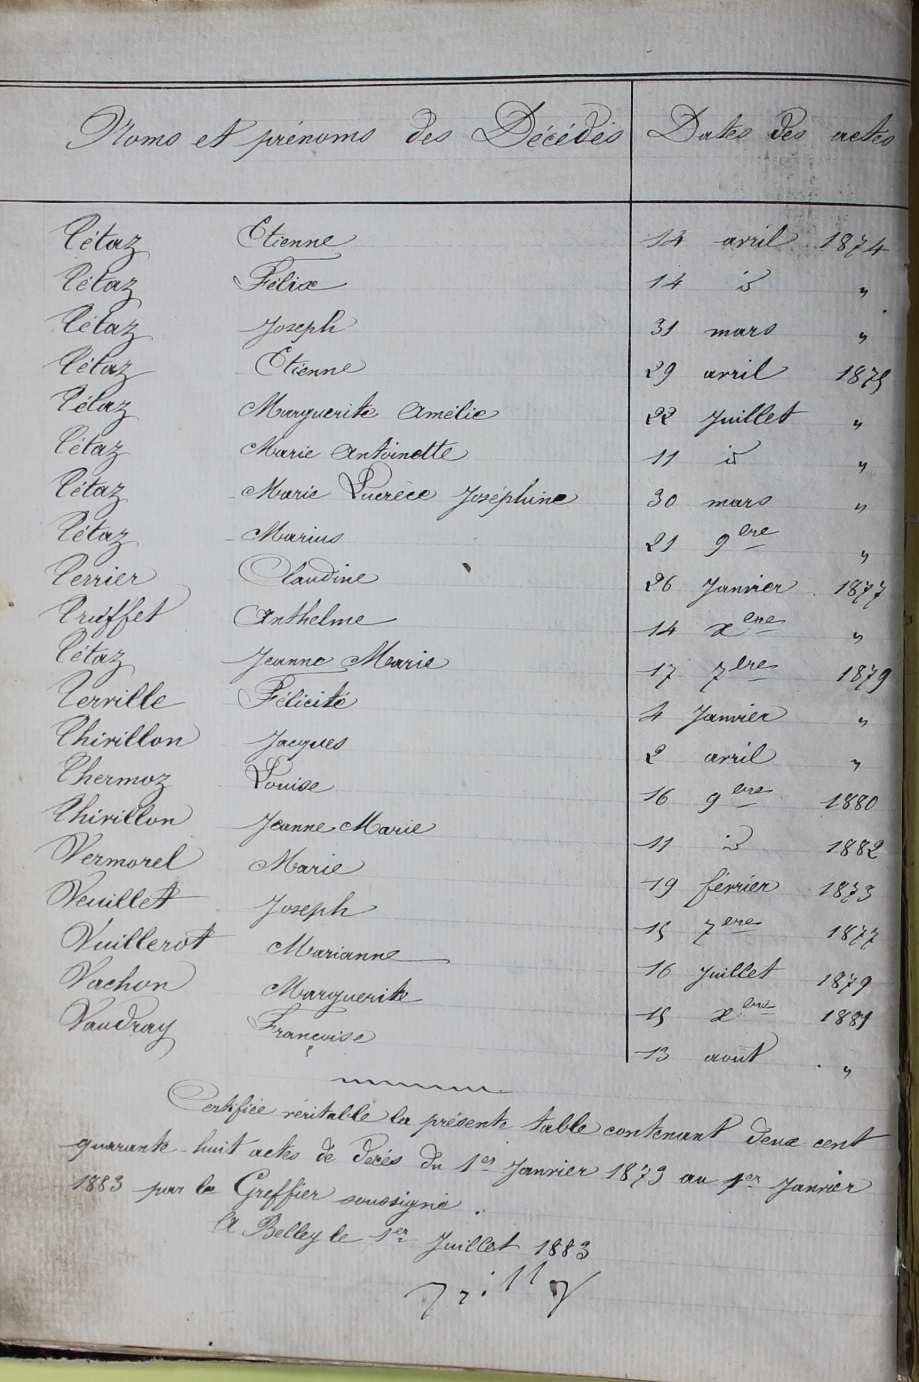 Noms et prénoms des Décédés Dates des actes
Tétaz Etienne 14 avril 1874
Tétaz Félix 14 id "
Tétaz Joseph 31 mars "
Tétaz Etienne 29 avril 1875
Tétaz Marguerite Amélie 22 Juillet "
Tétaz Marie Antoinette 11 id "
Tétaz Marie Lucrèce Joséphine 30 mars "
Tétaz Marius 21 9bre "
Terrier Claudine 26 Janvier 1877
Truffet Anthelme 14 xbre "
Tétaz Jeanne Marie 17 7bre 1879
Terville Félicité 4 Janvier "
Thivillon Jacques 2 avril "
Thermoz Louise 16 9bre 1880
Thivillon Jeanne Marie 11 id 1882
Vermorel Marie 19 février 1873
Veuillet Joseph 15 7bre 1877
Vuillerot Marianne 16 Juillet 1879
Vachon Marguerite 15 xbre 1881
Vaudray Françoise 13 août "
Certifiée véritable la présente table contenant deux cent
quarante-huit actes de décès du 1er Janvier 1873 au 1er Janvier
1883 par le Greffier soussigné.
A Belley le 1er Juillet 1883